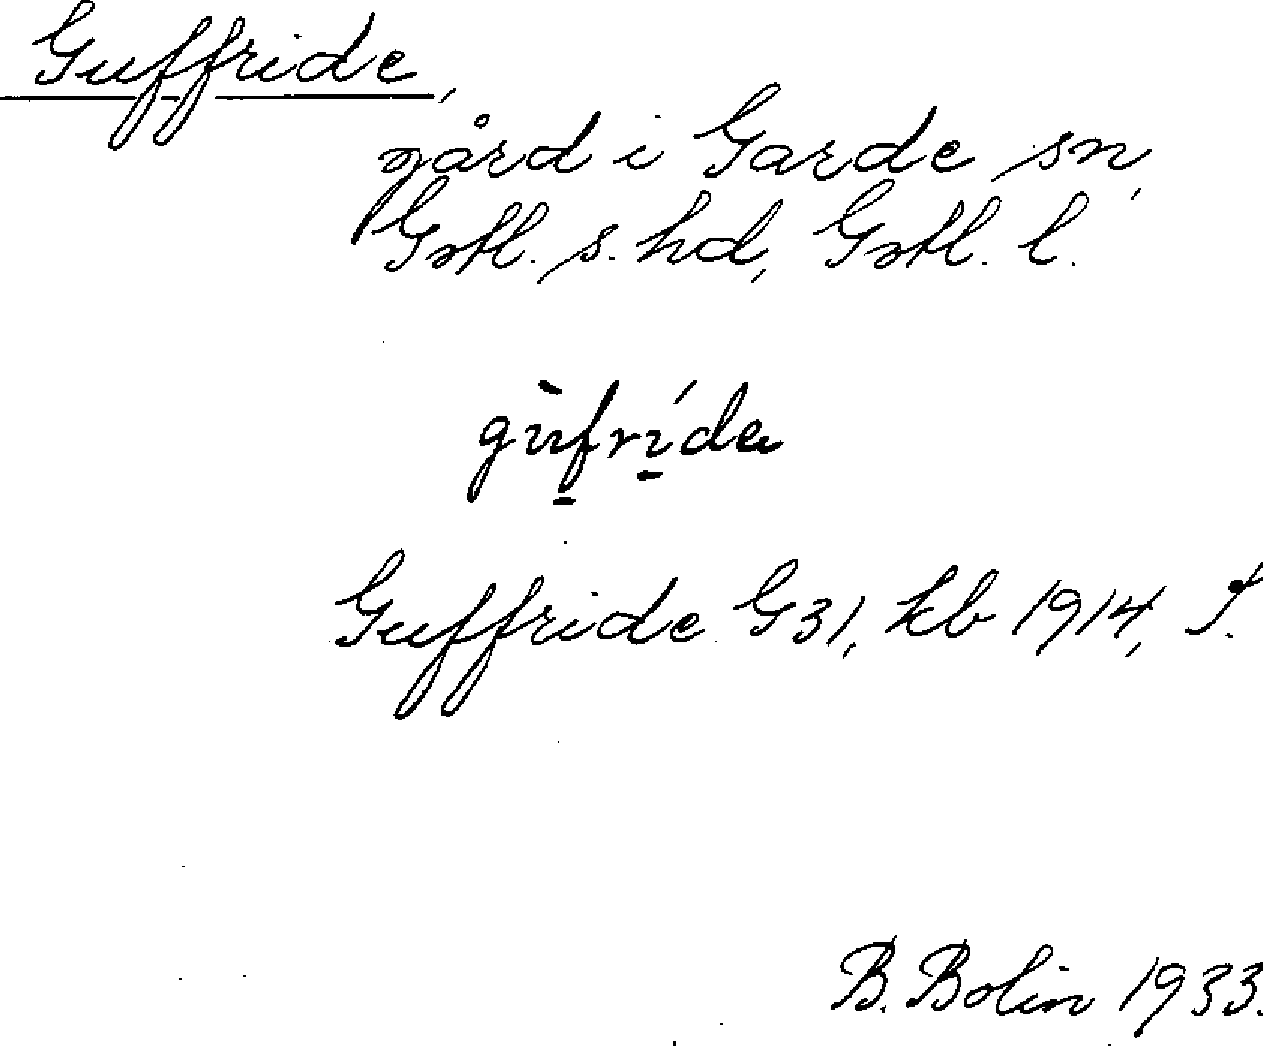 Guffride,
gård i Garde sn,
Gotl. s. hd, Gotl. l.
gùfríde
Guffride G31, kb 1914, J.
B. Bolin 1933.